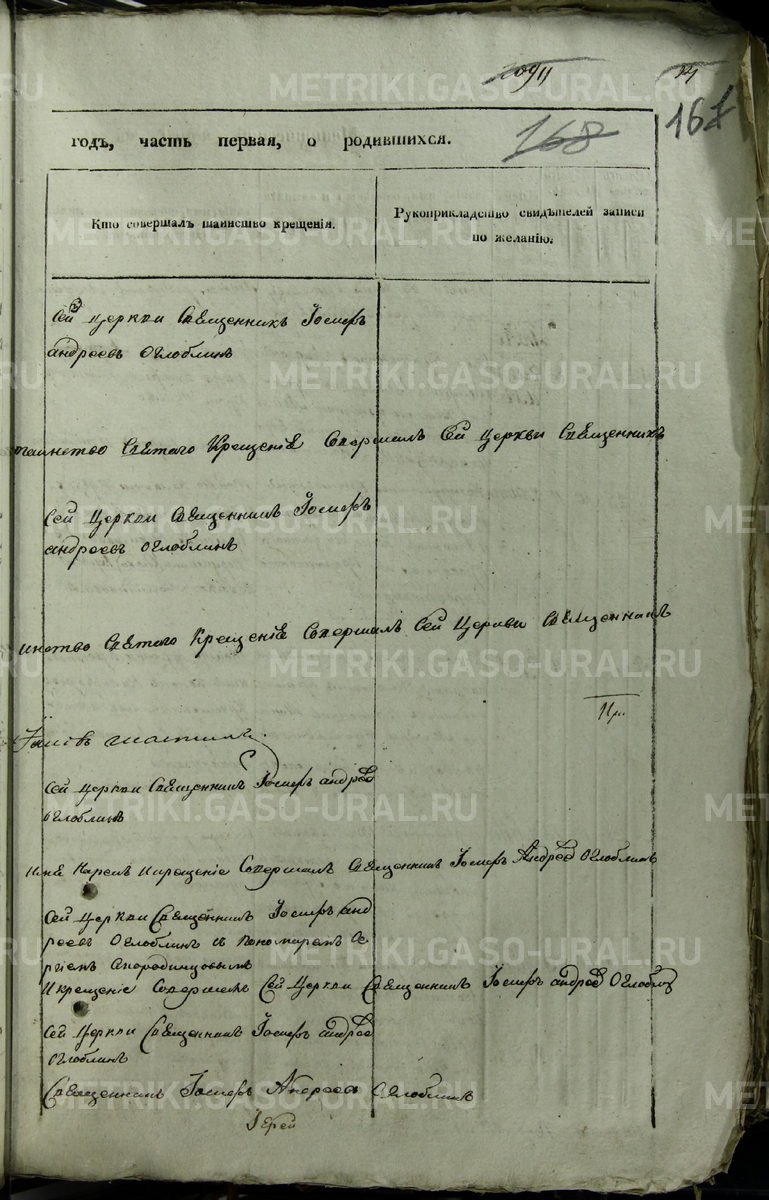 167
168
годъ, часть первая, о родившихся.
Кто совершалъ таинство крещенія.
Рукоприкладство свидѣтелей записи
по желанію.
Сей Церкви Священникъ Іосифъ
андреевъ Оглоблинъ
таинство Святаго Крещенія Совершалъ Сей Церкви Священникъ
Сей Церкви Священникъ Іосифъ
андреевъ Оглоблинъ
инство Святаго Крещеніе Совершалъ Сей Церкви Священникъ
Сей Церкви Священникъ Іосифъ андрее
Оглоблинъ
Имя Нарекъ Икрещеніе Совершалъ Священникъ Іосифъ Андрее Оглоблинъ
Сей Церкви Священникъ Іосифъ анд
реевъ Оглоблинъ съ пономаремъ
Икрещеніе Совершалъ Сей Церкви Священникъ Іосифъ андрее Оглобли
Сей Церкви Священникъ Іосифъ андрее
Оглоблинъ
Священникъ Іосифъ Андреевъ Оглоблинъ
Іерей
METRIKI.GASO-URAL.RU